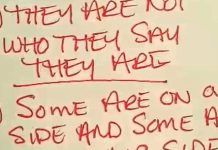 ) THEY ARE NOT
WHO THEY SAY
THEY ARE
) SOME ARE ON a
SIDE AND SOME A
SIDE